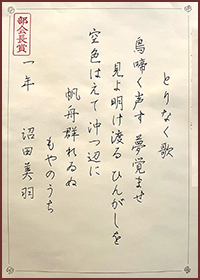 部会長賞
とりなく歌
鳥啼く声す夢覚ませ
見よ明け渡るひんがしを
空色はえて沖つ辺に
帆舟群れゐぬ
もやのうち
一年 沼田美羽